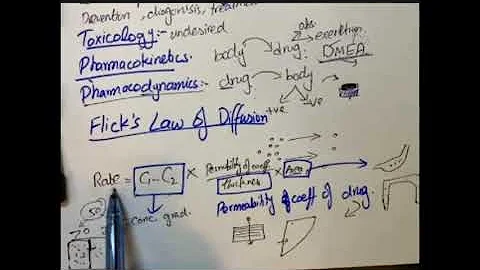 Prevention, diagnosis, treatment
Toxicology:- undesired
abs.
excretion
Pharmacokinetics. body drug. DMEA
Pharmacodynamics:- drug body
+ve -ve
Flick's Law of Diffusion
Rate = C₁-C₂ × Permibility of coeff × Area
thickness
conc. grad.
Permeability of coeff of drug.
50
70